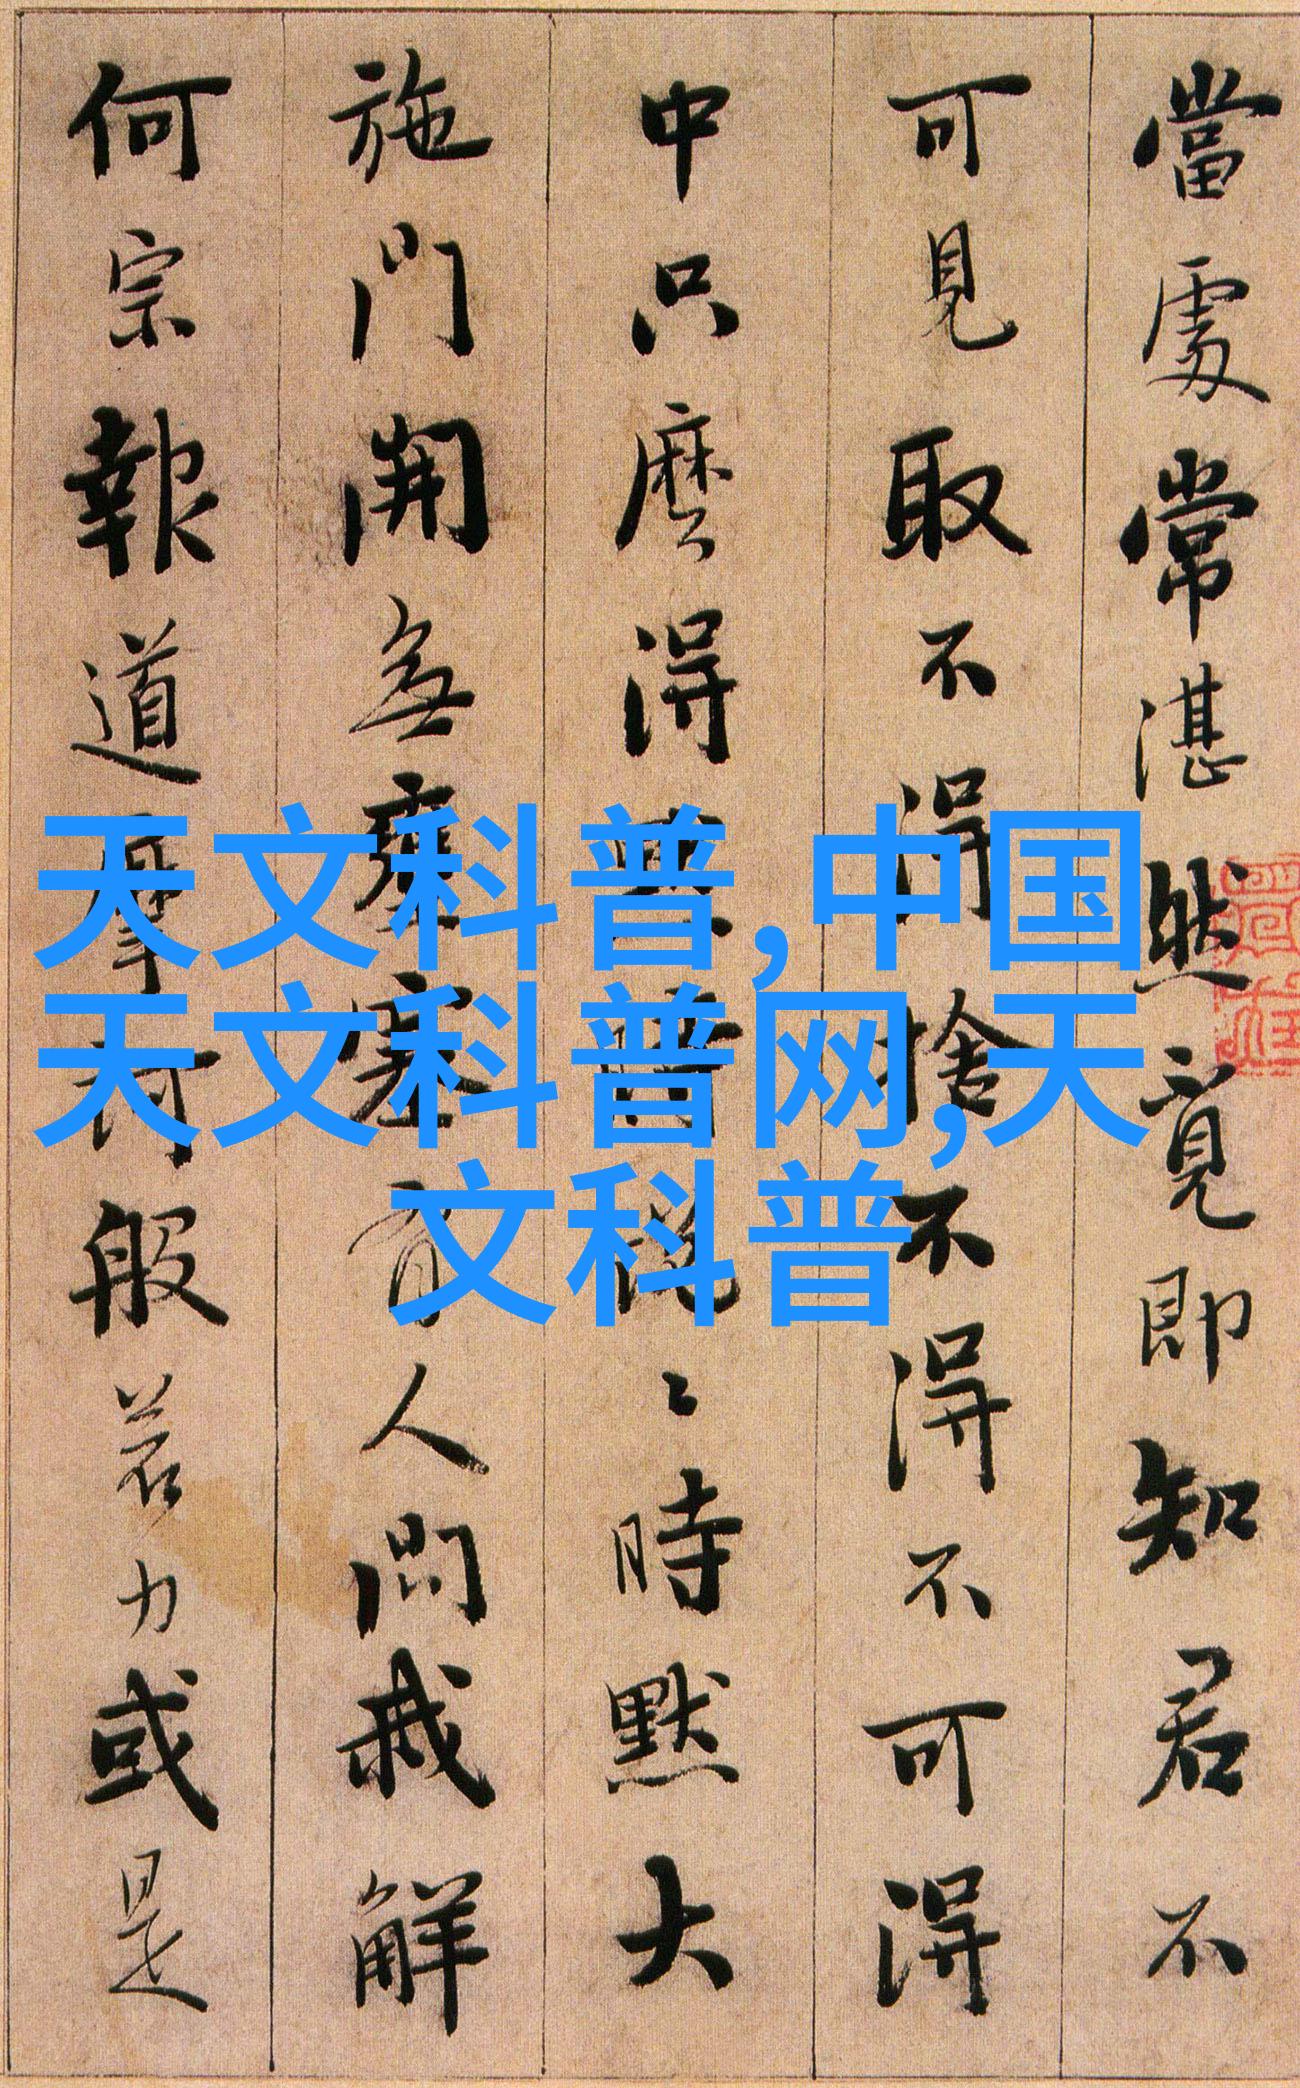 當處常湛然覓即知君不
可見取不得捨不得不可得
中只麼得默時說〻時默大
施門開無壅塞有人問我解
何宗報道摩訶般若力或是
天文科普,中国
天文科普网,天
文科普